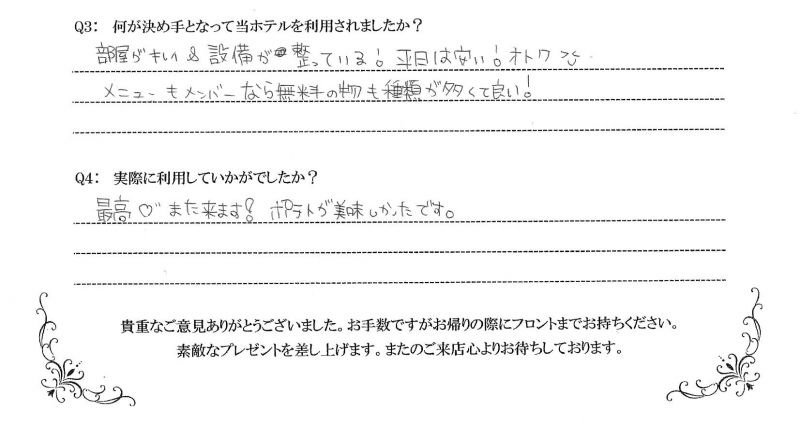 Q3： 何が決め手となって当ホテルを利用されましたか？
部屋がキレイ & 設備が整っている！ 平日は安い！ オトク
メニューもメンバーなら無料の物も種類が多くて良い！
Q4： 実際に利用していかがでしたか？
最高♡ また来ます！ ポテトが美味しかったです。
貴重なご意見ありがとうございました。お手数ですがお帰りの際にフロントまでお持ちください。
素敵なプレゼントを差し上げます。またのご来店心よりお待ちしております。